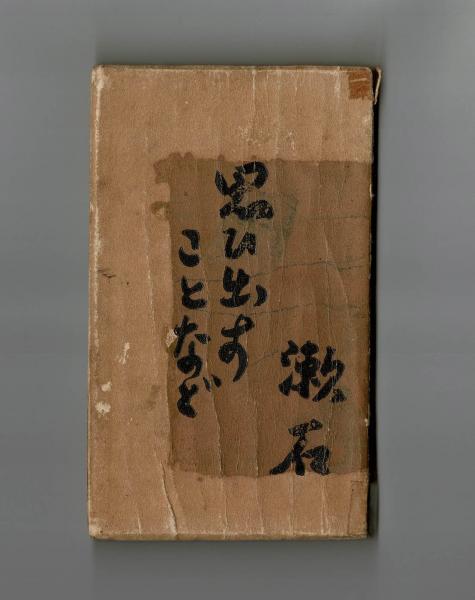 漱石
思ひ出す
ことなど